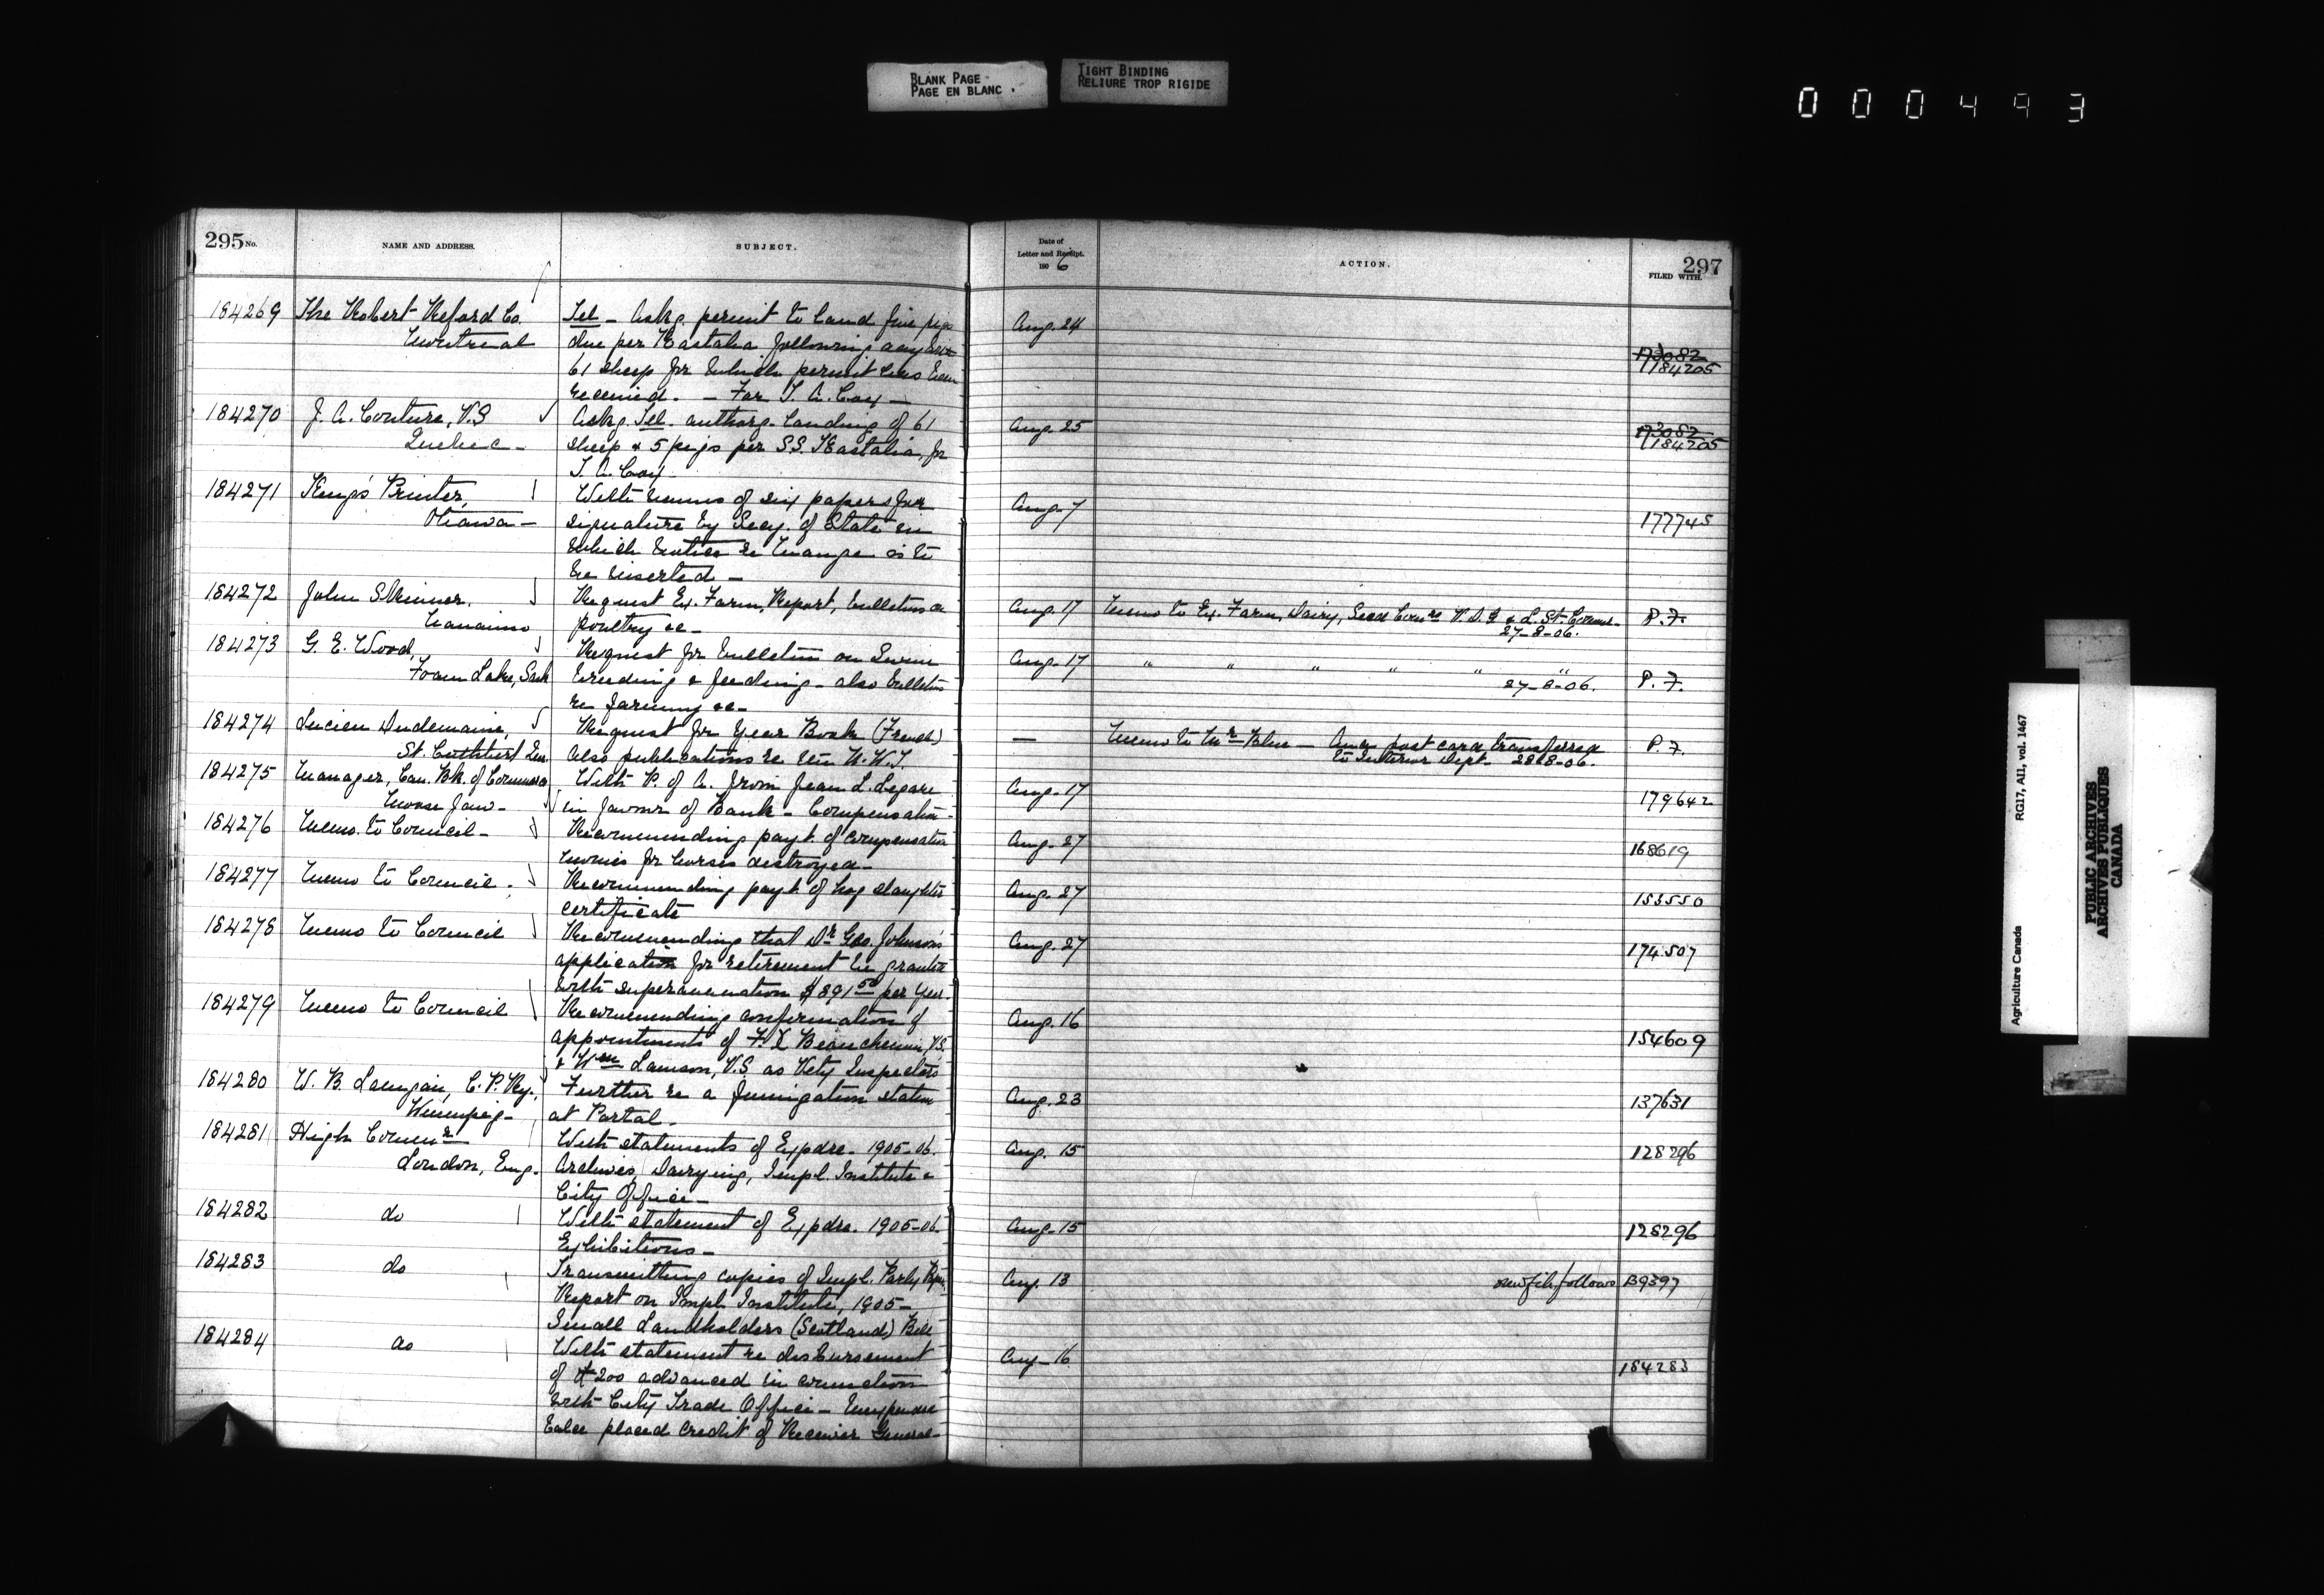 BLANK PAGE
PAGE EN BLANC .
TIGHT BINDING
RELIURE TROP RIGIDE
000493
295 No.
NAME AND ADDRESS.
SUBJECT.
Date of
Letter and Receipt.
1906
ACTION.
297
FILED WITH.
184269 The Robert Reford Co.
Montreal
Tel - Askg. permit to land five pigs
due per Kastalia following
61 sheep for which permit has been
received. - For T. A. Cox -
Aug. 24
173082
184205
184270 J. A. Couture, V.S
Quebec -
Askg. Tel. authorg. landing of 61
sheep & 5 pigs per S.S. Kastalia, for
T. A. Cox
Aug. 25
173082
184205
184271 King's Printer,
Ottawa -
With memo of six papers for
signature by Secy. of State in
which notice re Mange is to
be inserted -
Aug. 7
177745
184272 John Skinner.
Nanaimo
Request Ex. Farm, Report, bulletins re
poultry &c -
Aug. 17
Memo to Ex. Farm, Dairy, Seed Comrs V. D. G & L. St. Comr -
27-8-06.
P. F.
184273 G. E. Wood,
Foam Lake, Sask
Request for bulletin on Swine
breeding & feeding - also bulletins
re farming &c -
Aug. 17
" " " " " "
27-8-06.
P. F.
184274 Lucien Dudemaine,
St. Cuthbert Que.
Request for Year Book (French)
also publications re the N.W.T.
—
Memo to Mr Blue - post card transferred
to Interior Dept. 28-8-06.
P. F.
184275 Manager, Can. Bk. of Commerce
Moose Jaw -
With P. of A. from Jean L. Legare
in favour of Bank - Compensation -
Aug. 17
179642
184276 Memo. to Council -
Recommending payt. of compensation
monies for horses destroyed -
Aug. 27
168619
184277 Memo to Council.
Recommending payt. of hog slaughter
certificate
Aug. 27
153550
184278 Memo to Council
Recommending that Dr Geo. Johnson's
application for retirement be granted
with superannuation $891 50 per year.
Aug. 27
174507
184279 Memo to Council
Recommending confirmation of
appointments of F. X Beauchemin, V.S.
& Wm Lawson, V.S. as Vety Inspectors
Aug. 16
154609
184280 W. B. Lanigan, C. P. Ry.,
Winnipeg -
Further re a fumigation station
at Portal -
Aug. 23
137631
184281 High Commr
London, Eng.
With statements of Expdre. 1905-06.
Archives, Dairying, Impl. Institute &
City Office -
Aug. 15
128296
184282 do
With statement of Expdre. 1905-06.
Exhibitions -
Aug. 15
128296
184283 do
Transmitting copies of Impl. Parly Paper,
Report on Impl. Institute, 1905 -
Small Landholders (Scotland) Bill
Aug. 13
new file follows B9397
184284 do
With statement re disbursement
of £200 advanced in connection
with City Trade Office - Unexpended
balce placed credit of Receiver General -
Aug - 16
184283
Agriculture Canada
RG17, AII, vol. 1467
PUBLIC ARCHIVES
ARCHIVES PUBLIQUES
CANADA